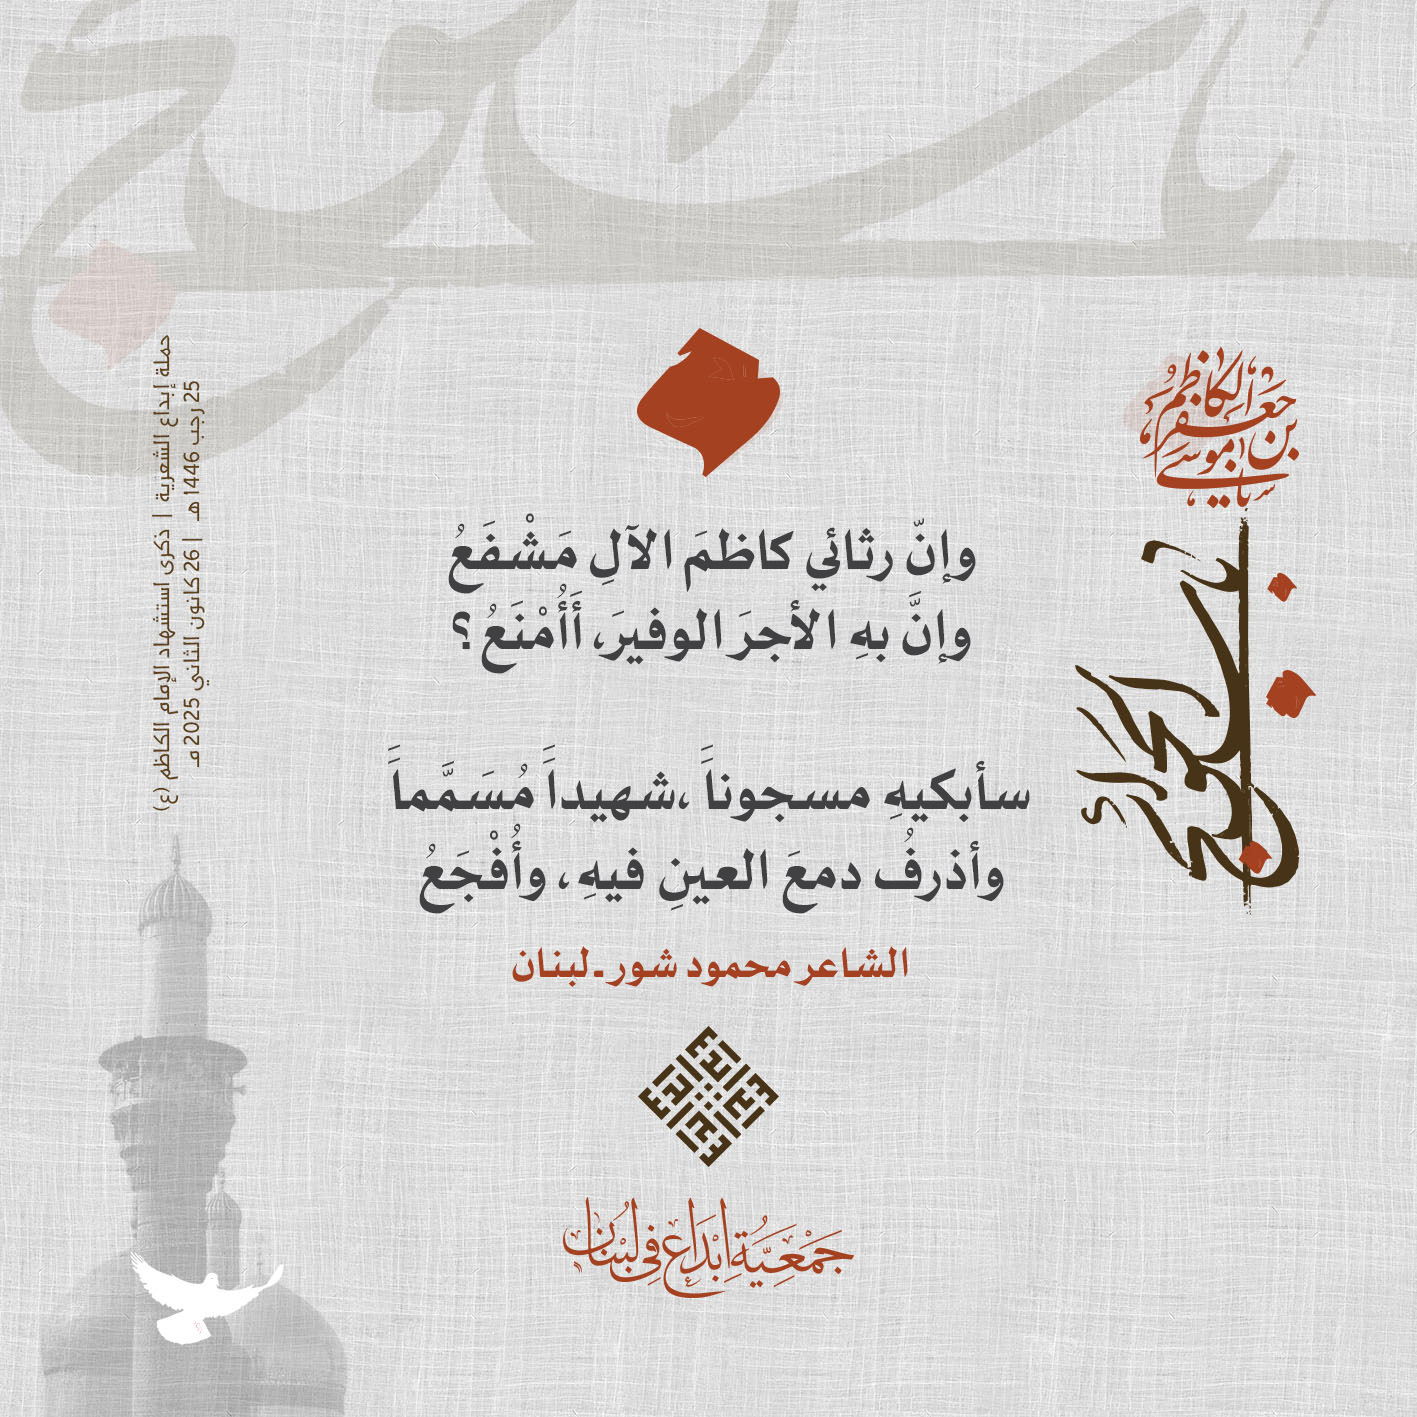 يا باب الحوائج
يا موسى بن جعفر الكاظم
وإنّ رثائي كاظمَ الآلِ مَشْفَعُ
وإنَّ بهِ الأجرَ الوفيرَ، أَأُمْنَعُ؟
سأبكيهِ مسجوناً ،شهيداً مُسَمَّماً
وأذرفُ دمعَ العينِ فيهِ، وأُفْجَعُ
الشاعر محمود شور ـ لبنان
جَمْعِيَّةُ إِبْدَاع فِي لُبْنَان
حملة إبداع الشعرية | ذكرى استشهاد الإمام الكاظم (ع)
25 رجب 1446 هـ | 26 كانون الثاني 2025 مـ